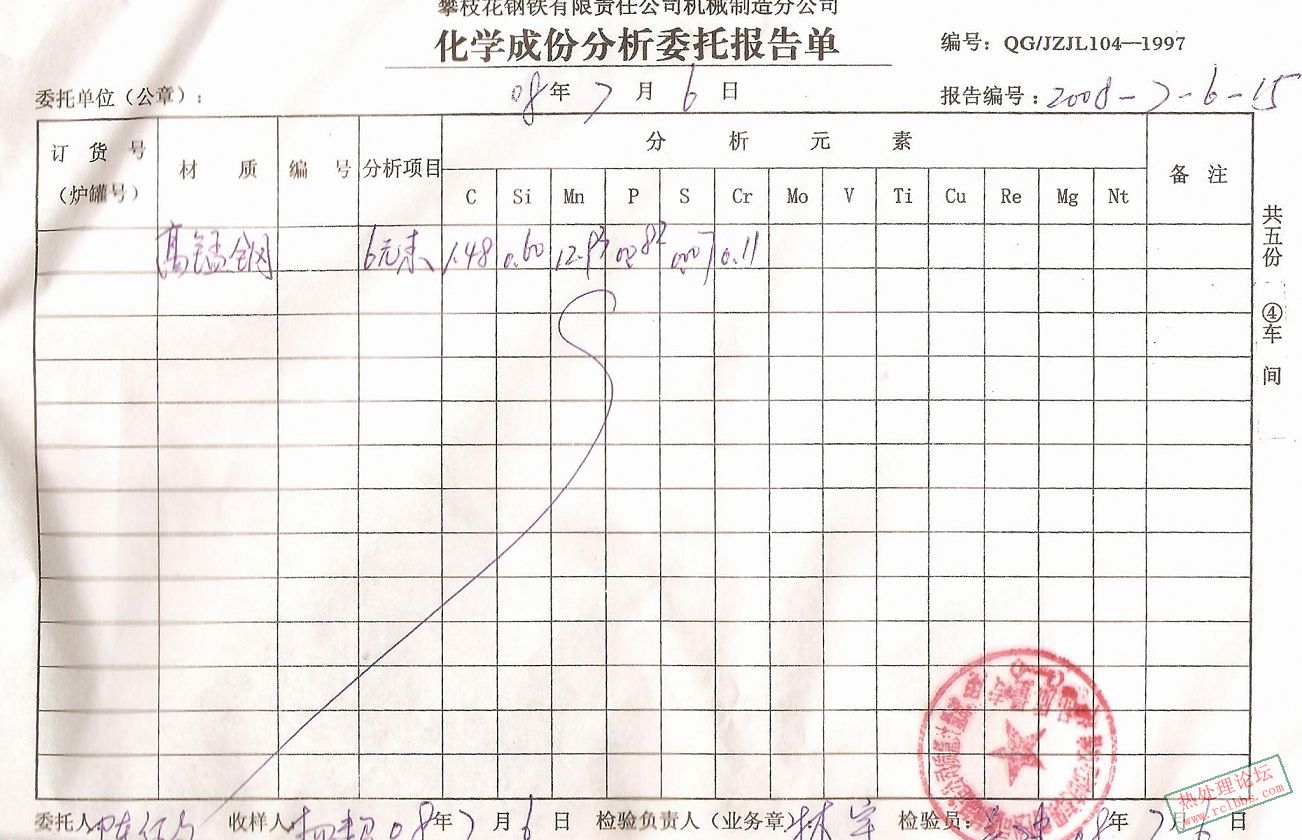 攀枝花钢铁有限责任公司机械制造分公司
化学成份分析委托报告单
编号：QG/JZJL104—1997
委托单位（公章）：
08年7月6日
报告编号：2008-7-6-15
订货号
（炉罐号）
材质
编号
分析项目
分析元素
备注
C Si Mn P S Cr Mo V Ti Cu Re Mg Nt
高锰钢 6元素 1.48 0.60 0.11
共五份 ④车间
委托人
收样人 08年7月6日
检验负责人（业务章）
检验员： 08年7月6日
热处理论坛
www.rclbbs.com